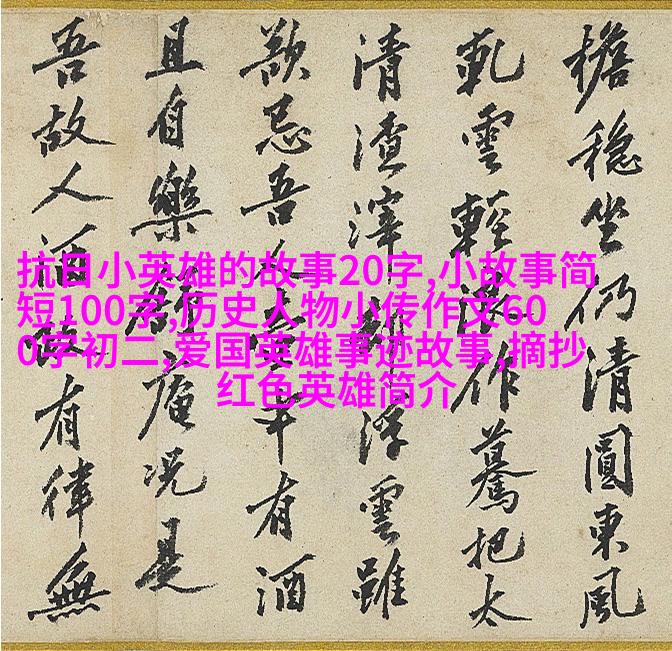 抗日小英雄的故事20字,小故事简
短100字,历史人物小传作文60
0字初二,爱国英雄事迹故事,摘抄
红色英雄简介
檐穏坐仍清圓東風
軋雲輕浪作把太
清渣滓浮雲雖
忌吾年有酒
且自樂庵况是
吾故人酒故有律無